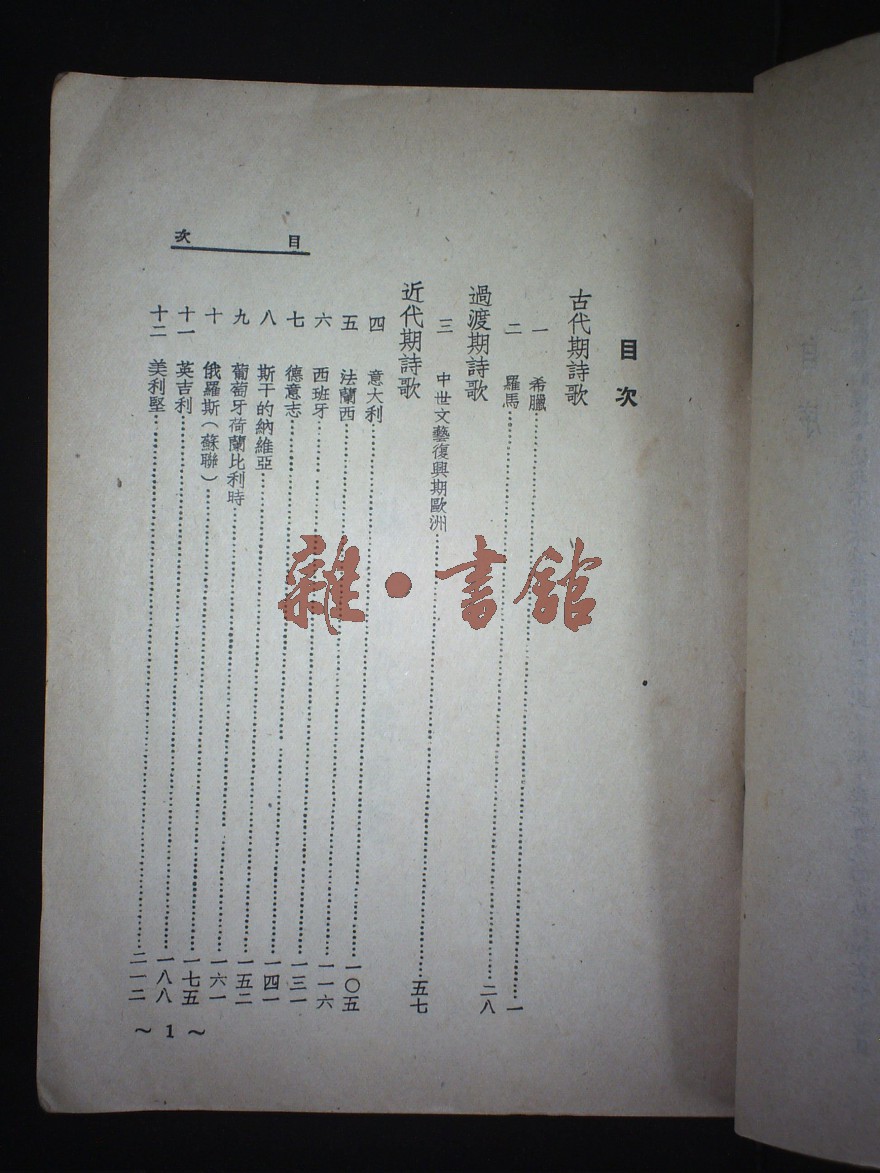 目次
目次
古代期詩歌
一 希臘……一
二 羅馬……二八
過渡期詩歌
三 中世文藝復興期歐洲……五七
近代期詩歌
四 意大利……一〇五
五 法蘭西……一一六
六 西班牙……一三一
七 德意志……一四一
八 斯干的納維亞……一五二
九 葡萄牙荷蘭比利時……一六一
十 俄羅斯（蘇聯）……一七五
十一 英吉利……一八八
十二 美利堅……二一二
～ 1 ～
雜·書館